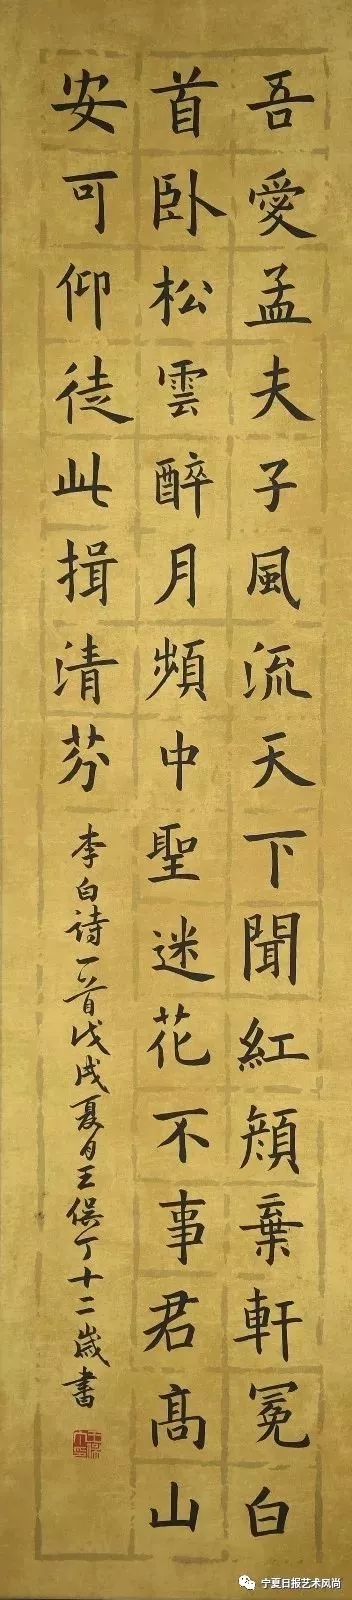 吾愛孟夫子風流天下聞紅顏棄軒冕白
首卧松雲醉月頻中聖迷花不事君高山
安可仰徒此揖清芬
李白诗一首戊戌夏月王俣丁十二歲書
宁夏日报艺术风尚